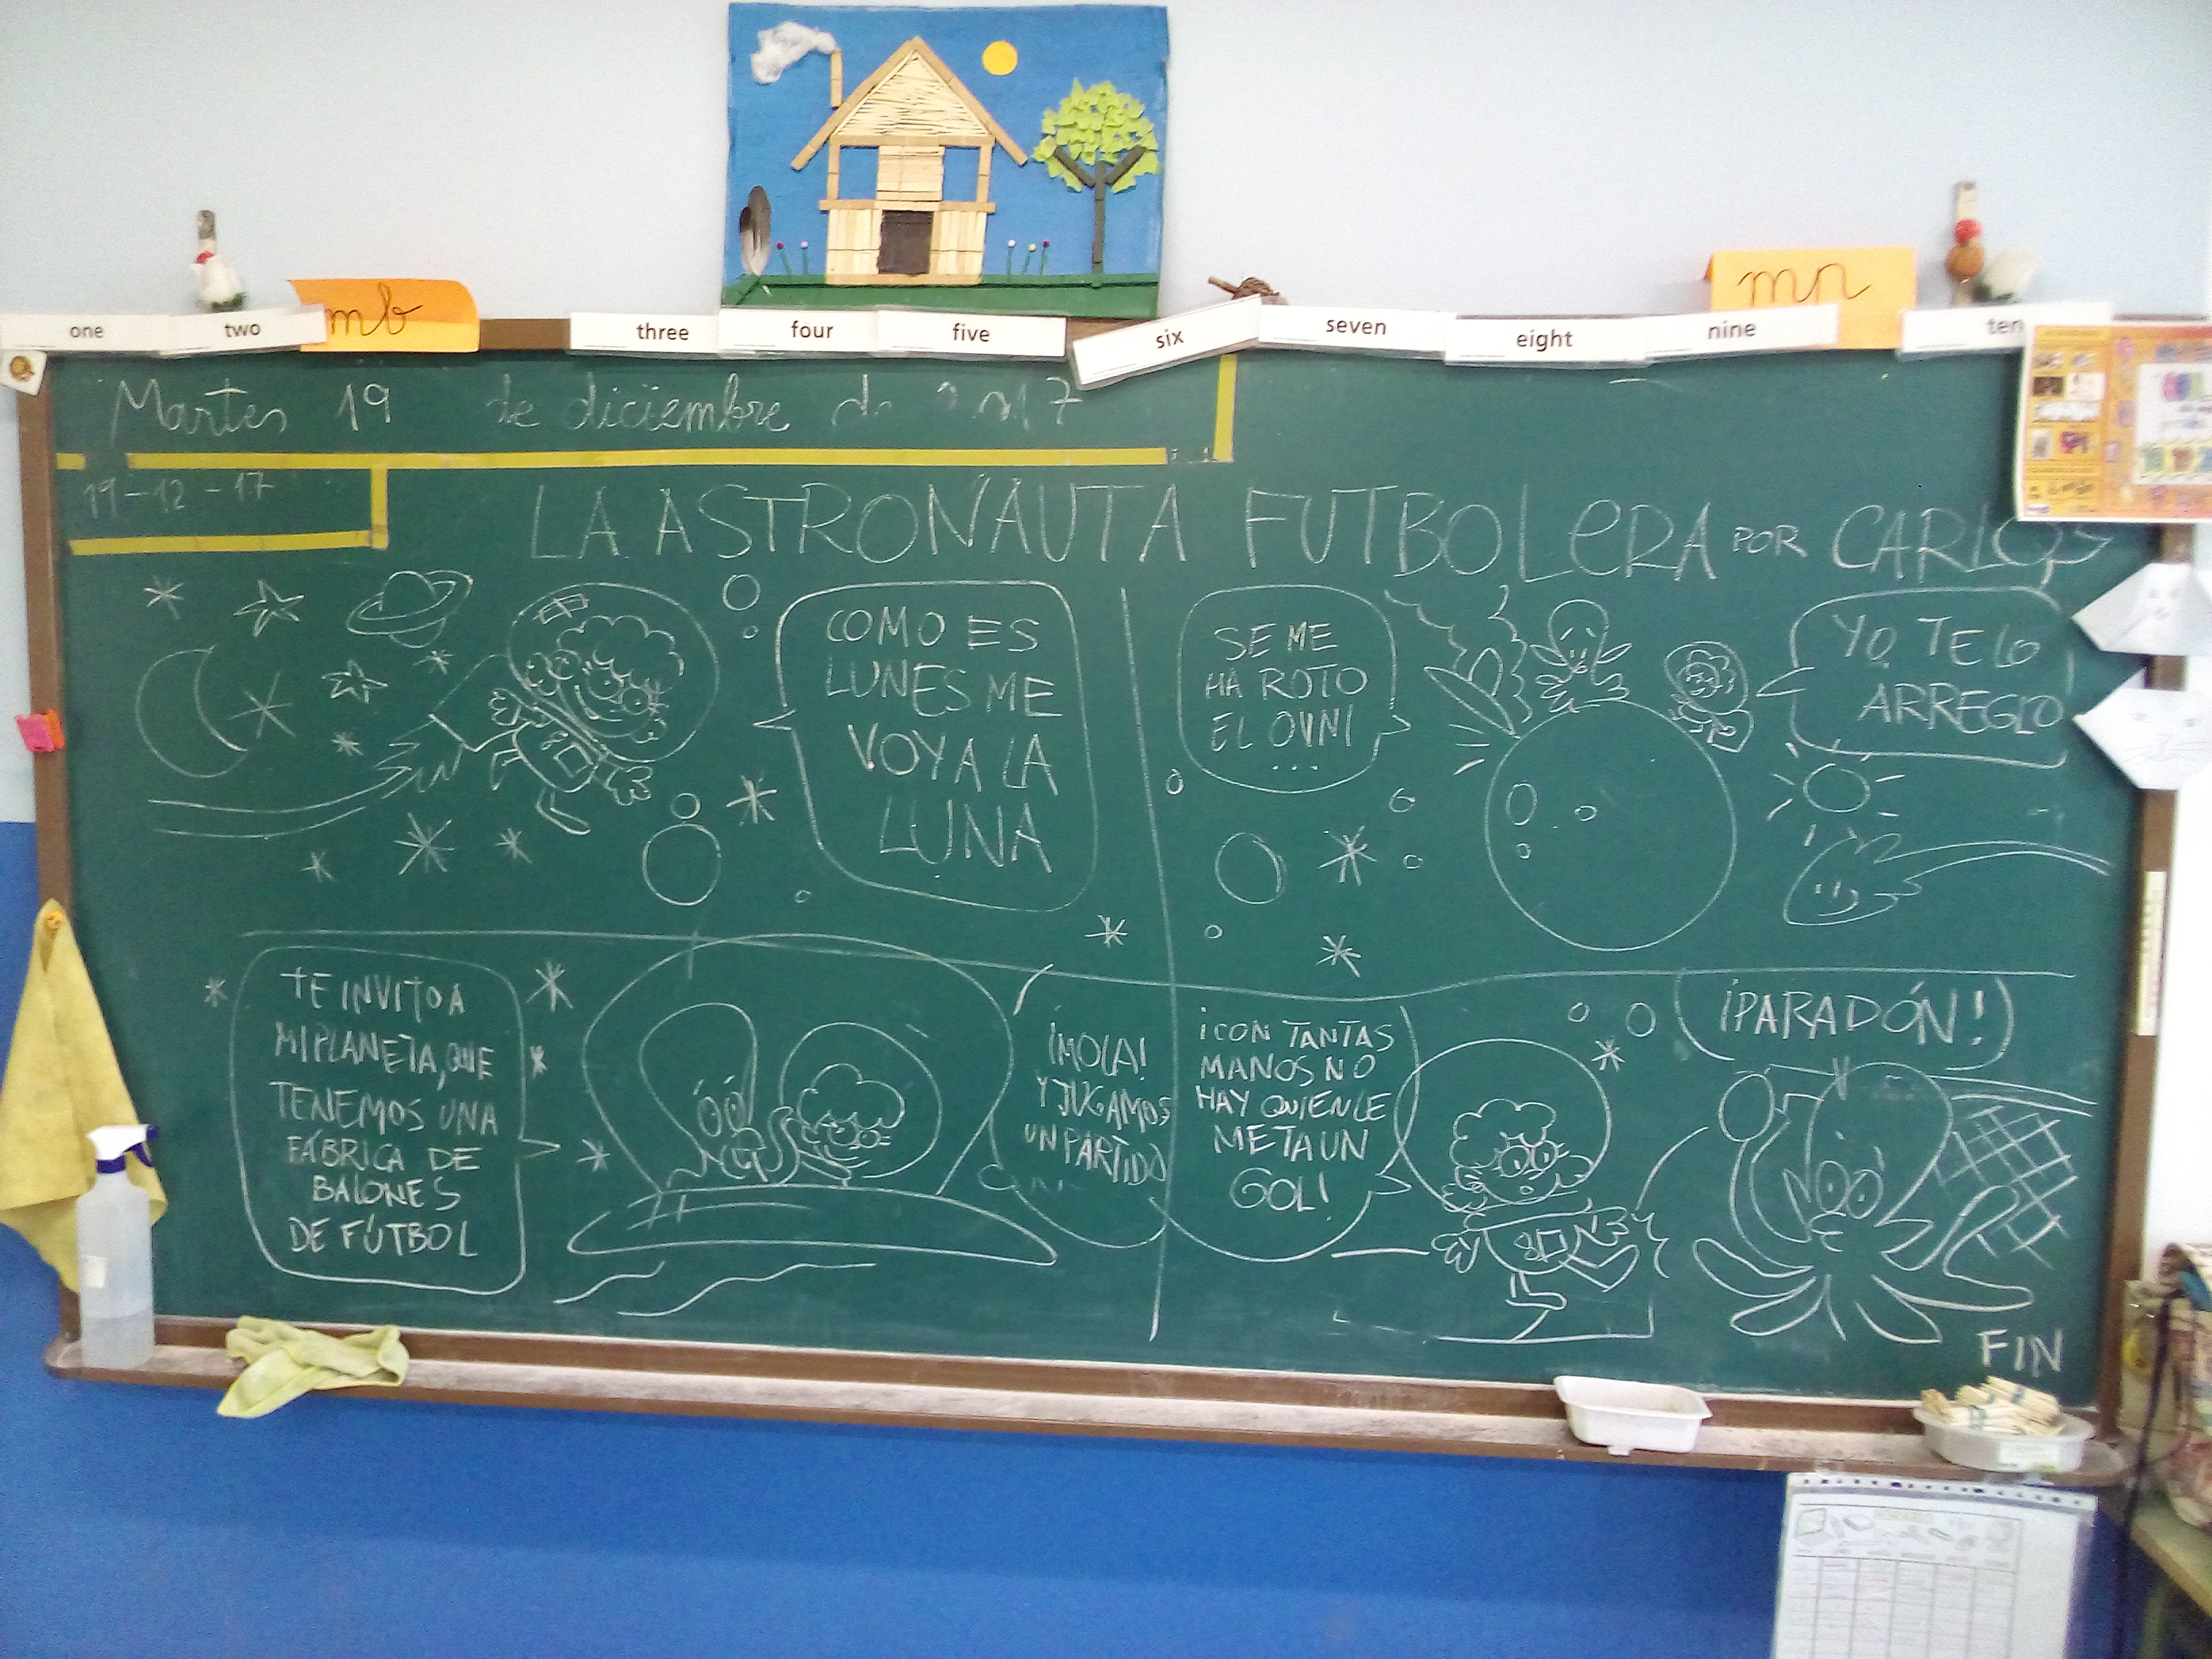 one
two
mb
three
four
five
six
seven
eight
nine
mn
ten
Martes 19 de diciembre
19-12-17
LA ASTRONAUTA FUTBOLERA POR CARLOS
COMO ES
LUNES ME
VOY A LA
LUNA
SE ME
HA ROTO
EL OVNI
...
YO TE LO
ARREGLO
TE INVITO A
MI PLANETA, QUE
TENEMOS UNA
FÁBRICA DE
BALONES
DE FÚTBOL
¡MOLA!
Y JUGAMOS
UN PARTIDO
¡CON TANTAS
MANOS NO
HAY QUIEN LE
META UN
GOL!
¡PARADÓN!
FIN